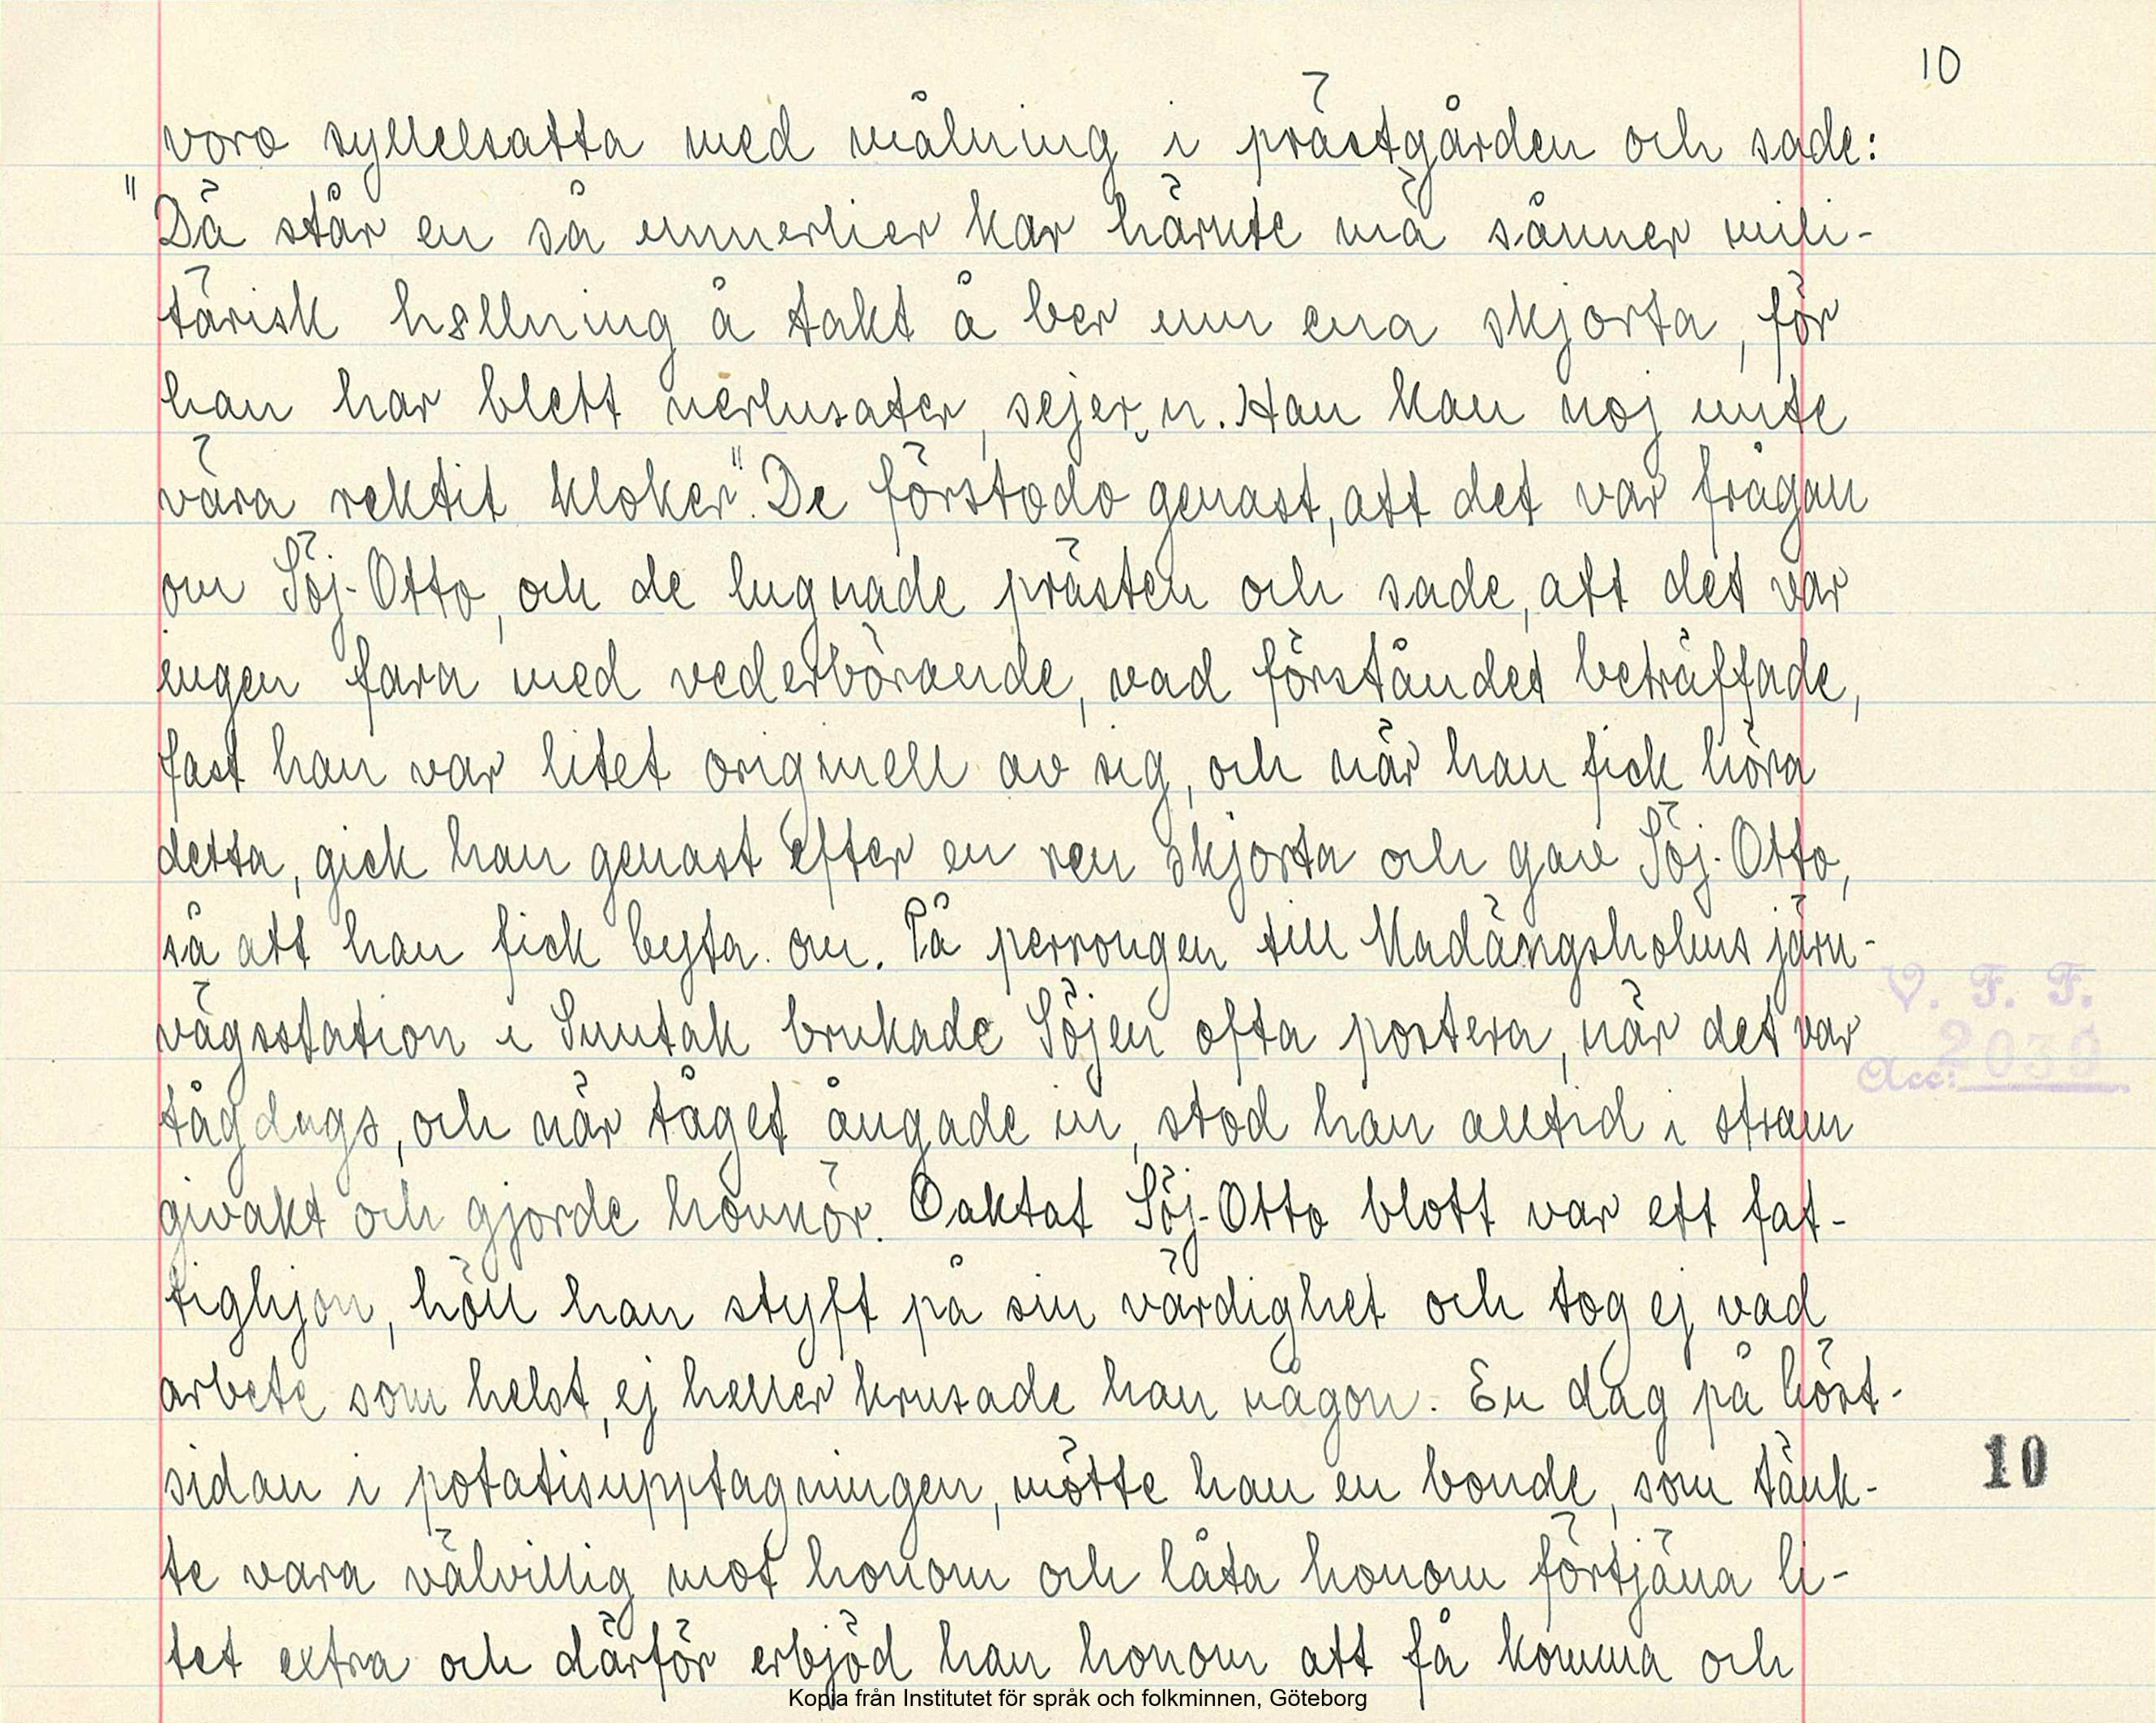 10
voro syllelsatta med målning i prästgården och sade:
"Dä står en så unnerlier kar härute mä sånner mili-
tärisk hållning å takt å ber um ena skjorta, för
han har blett nerlusater, sejer, n. Han kan noj unte
vära rektit kloker". De förstodo genast, att det var frågan
om Söj-Otto, och de lugnade prästen och sade, att det var
ingen fara med vederbörande, vad förståndet beträffade,
fast han var litet originell av sig, och när han fick höra
detta, gick han genast efter en ren skjorta och gav Söj-Otto,
så att han fick byta om. På perrongen till Madängsholms järn-
vägsstation i Suntak brukade Söjen ofta postera, när det var
tågdags, och när tåget ångade in, stod han alltid i stram
givakt och gjorde honnör. Oaktat Söj-Otto blott var ett fat-
tighjon, höll han styft på sin värdighet och tog ej vad
arbete som helst, ej heller krusade han någon. En dag på höst-
sidan i potatisupptagningen, mötte han en bonde, som tänk-
te vara välvillig mot honom och låta honom förtjäna li-
tet extra och därför erbjöd han honom att få komma och
V. F. F.
Acc: 2039
10
Kopia från Institutet för språk och folkminnen, Göteborg